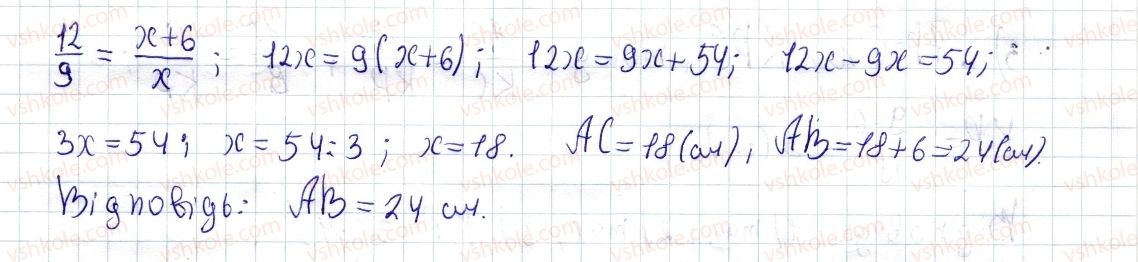 12/9 = x+6/x ; 12x = 9(x+6); 12x = 9x + 54; 12x - 9x = 54;
3x = 54; x = 54 : 3 ; x = 18. AC = 18 (см), AB = 18 + 6 = 24 (см).
Відповідь: AB = 24 см.